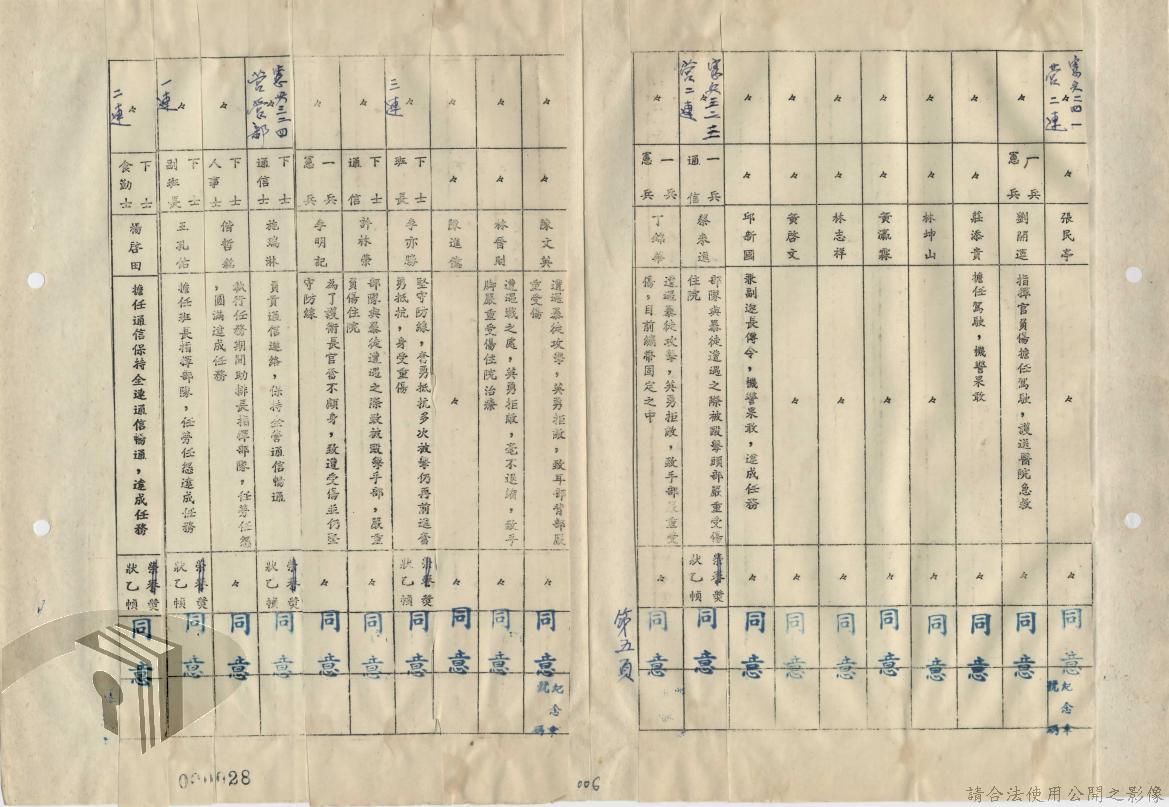 憲兵二四一營二連
〃
張民亭
〃
〃
同意
紀念章號碼
〃
一兵憲兵
劉開遠
指揮官負傷擔任駕駛,護送醫院急救
〃
同意
〃
〃
莊添貴
擔任駕駛,機警果敢
〃
同意
〃
〃
林坤山
〃
〃
同意
〃
〃
黃瀛霖
〃
〃
同意
〃
〃
林志祥
〃
〃
同意
〃
〃
黃啓文
〃
〃
同意
〃
〃
邱新國
兼副連長傳令,機警果敢,達成任務
〃
同意
營二連
一兵通信
蔡來進
部隊與暴徒遭遇之際被毆擊頭部嚴重受傷住院
榮譽獎狀乙幀
同意
〃
一兵憲兵
遭遇暴徒攻擊,英勇拒敵,致手部嚴重受傷,目前繃帶固定之中
〃
同意
第五頁
〃
〃
陳文英
遭遇暴徒攻擊,英勇拒敵,致耳部背部嚴重受傷
〃
同意
紀念章號碼
〃
〃
遭遇戰之處,英勇拒敵,毫不退縮,致手脚嚴重受傷住院治療
〃
同意
〃
〃
〃
〃
同意
三連
〃
下士班長
李亦勝
堅守防線,奮勇抵抗多次被擊仍再前進奮勇抵抗,身受重傷
榮譽獎狀乙幀
同意
〃
下士通信
許林榮
部隊與暴徒遭遇之際致被毆擊手部,嚴重負傷住院
〃
同意
〃
一兵憲兵
李明記
為了護衛長官奮不顧身,致遭受傷並仍堅守防線
〃
同意
憲兵二三四營營部
下士通信士
施瑞淋
負責通信連絡,保持全營通信暢通
榮譽獎狀乙幀
同意
〃
下士人事士
執行任務期間助排長指揮部隊,任勞任怨,圓滿達成任務
〃
同意
一連
〃
下士副班長
王孔佑
擔任班長指揮部隊,任勞任怨達成任務
榮譽獎狀乙幀
同意
二連
〃
下士食勤士
楊啓田
擔任通信保持全連通信暢通,達成任務
榮譽獎狀乙幀
同意
006
請合法使用公開之影像